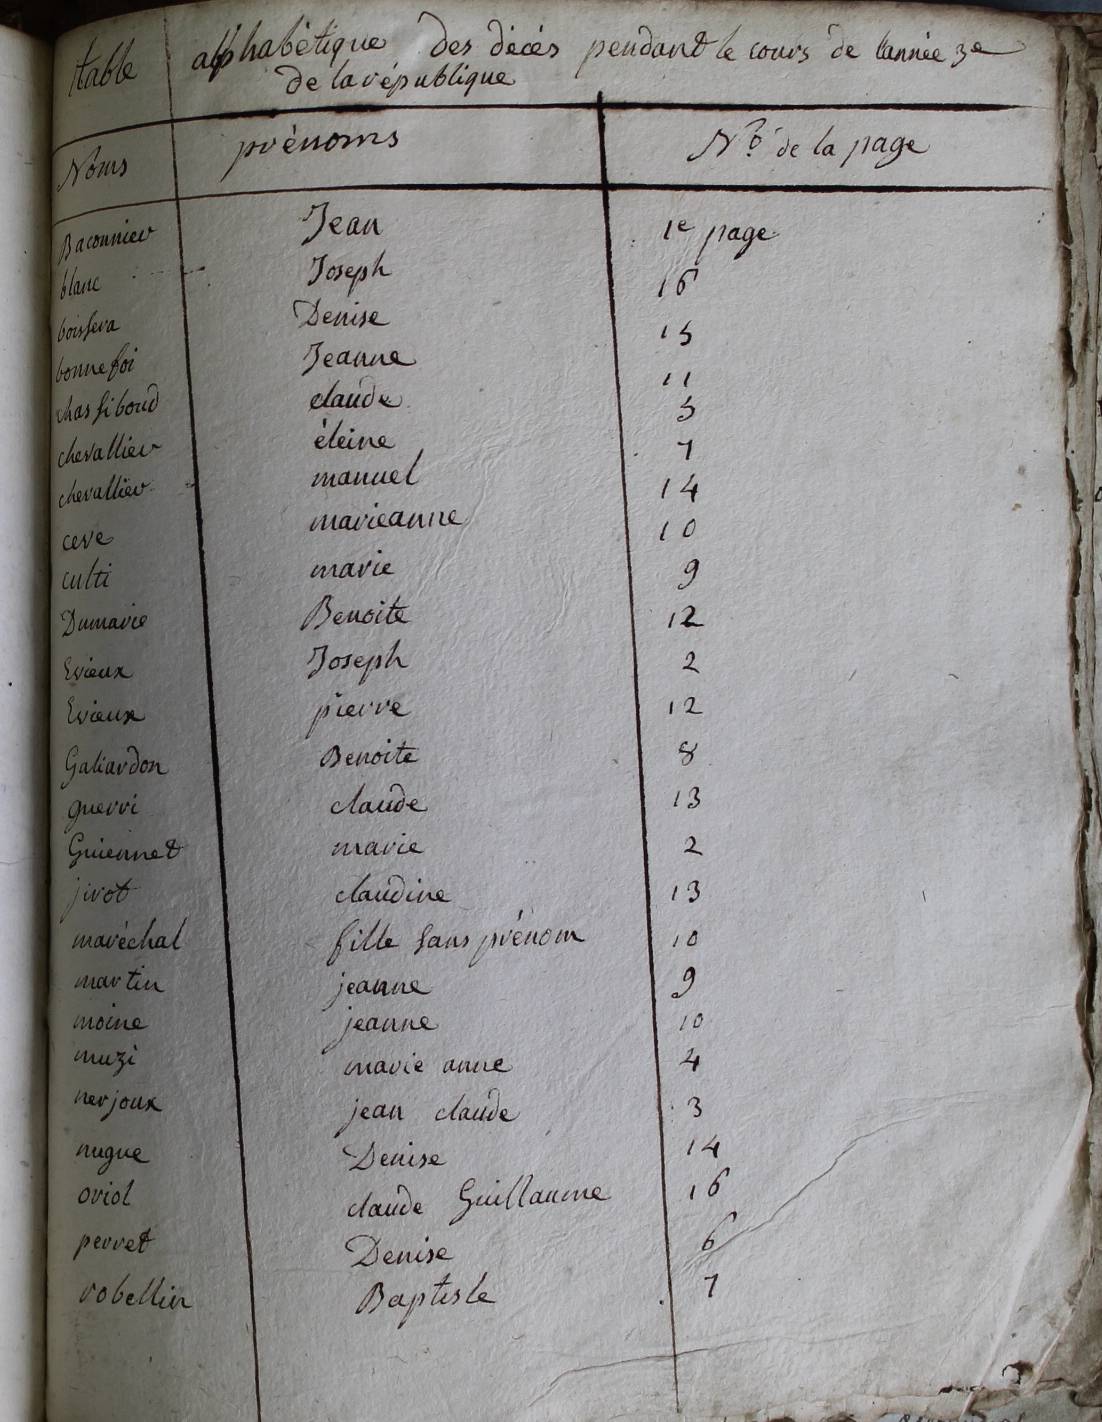 table alphabétique des décés pendant le cours de l'année 3e
de la république
Noms prénoms No. de la page
Baconnier Jean 1e page
blanc Joseph 16
boissera Denise 15
bonnefoi Jeanne 11
chassiboud claude 5
chevallier éleine 7
chevallier manuel 14
ceve marieanne 10
culti marie 9
Dumarie Benoite 12
Evieux Joseph 2
Evieux pierre 12
Galiardon Benoite 8
guerri claude 13
Guiennet marie 2
jivot claudine 13
maréchal fille sans prénom 10
martin jeanne 9
moine jeanne 10
muzi marie anne 4
nerjoux jean claude 3
nugue Denise 14
oriol claude Guillaume 16
perret Denise 6
robellin Baptiste 7